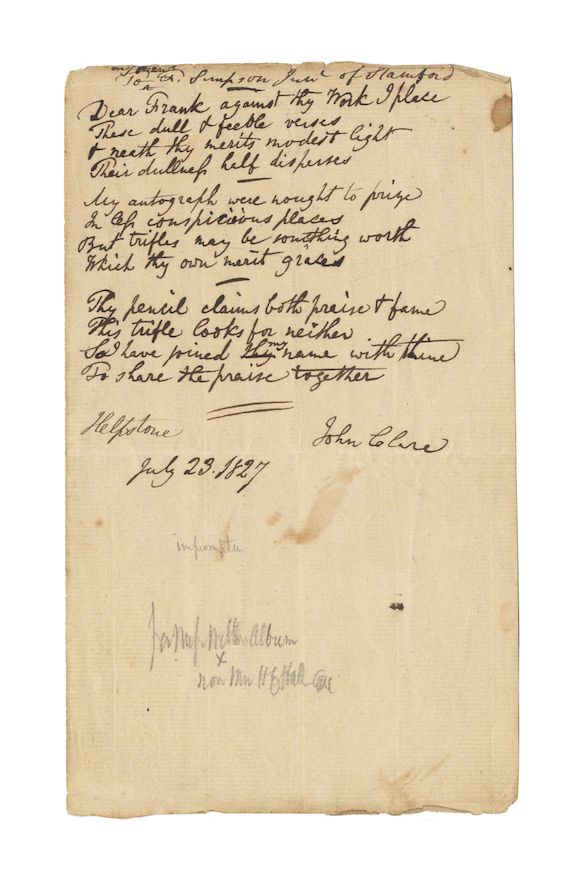 my friend
To F. Simpson Junr of Stamford
Dear Frank against thy Work I place
These dull & feeble verses
& neath thy merits modest light
Their dullness half disperses
My autograph were nought to prize
In less conspicious places
But trifles may be something worth
Which thy own merit graces
Thy pencil claims both praise & fame
This trifle looks for neither
So I have joined thy my name with thine
To share the praise together
Helpstone
John Clare
July 23. 1827
impromtu
for Miss Album
x
now Mrs Hall